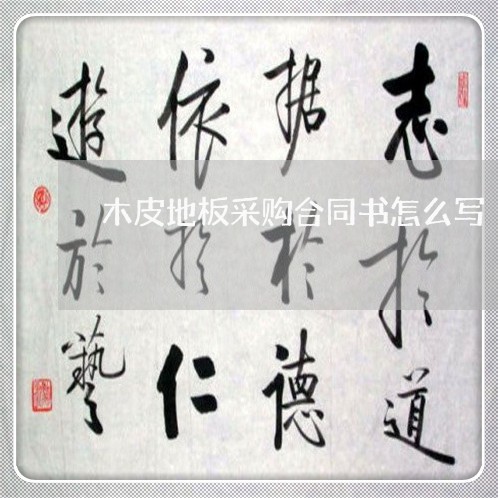 志於道
据於德
依於仁
遊於藝
木皮地板采购合同书怎么写